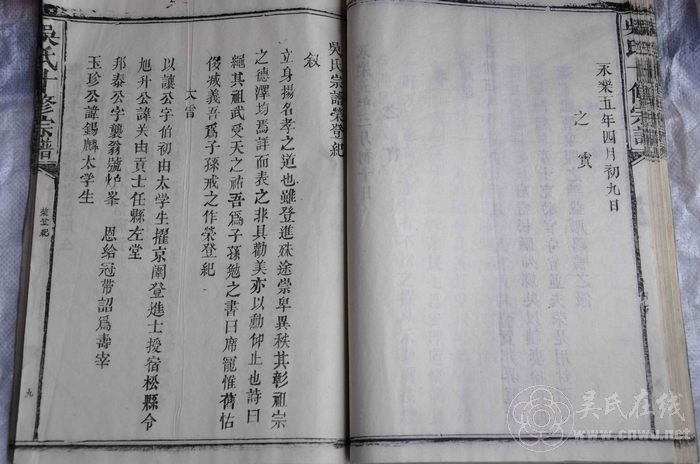 吳氏十修宗譜
永樂五年四月初九日
之寶
吳氏宗譜榮登紀
叙
立身揚名孝之道也雖登進殊途崇卑異秩其彰祖宗
之德澤均焉詳而表之非具勸美亦以動仰止也詩曰
繩其祖武受天之祜吾爲子孫勉之書曰席寵惟舊怙
侈滅義吾爲子孫戒之作榮登紀
太雷
以讓公字伯初由太學生擢京闈登進士授宿松縣令
旭升公諱关由貢士任縣左堂
邦泰公字襲翁號怡峯 恩給冠帶詔爲壽宰
玉珍公諱錫麟太学生
吳氏十修宗譜
榮登紀
九
吴氏在线
www.cnwu.net